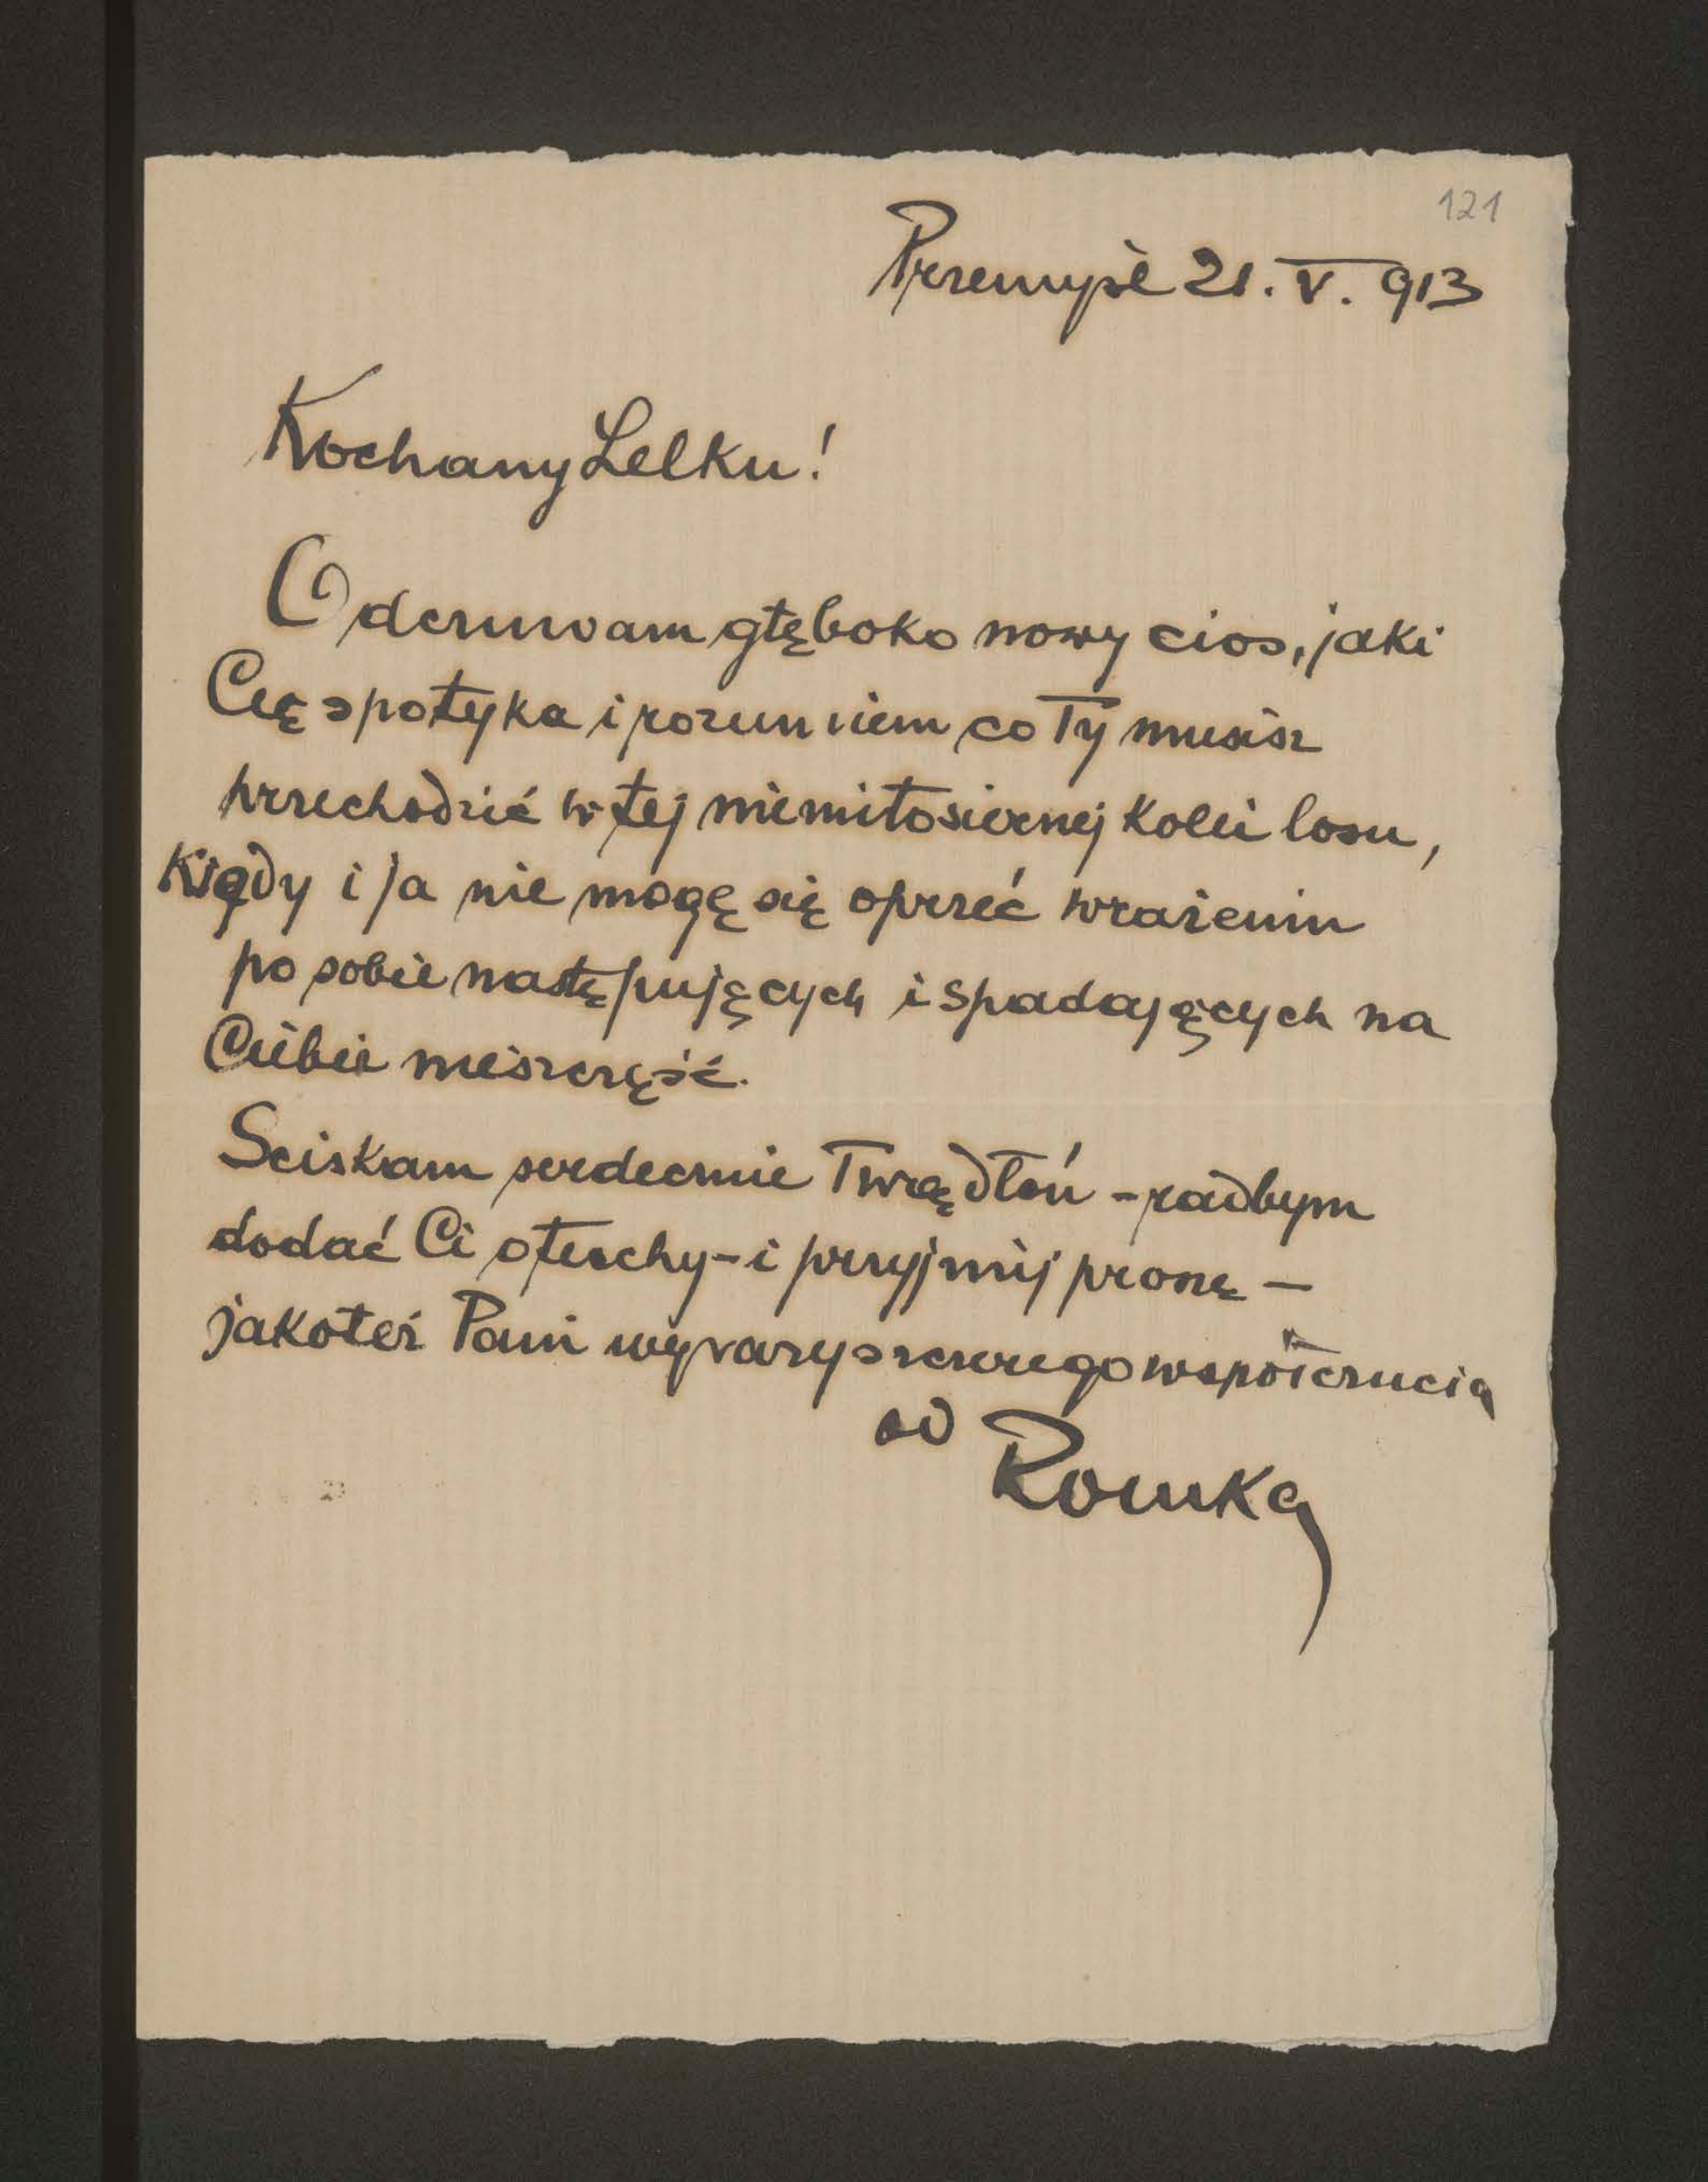 121
Przemyśl 21. V. 913
Kochany Lelku!
Odczuwam głęboko nowy cios, jaki
Cię spotyka i rozumiem co Ty musisz
przechodzić w tej niemiłosiernej kolei losu,
Kiedy i ja nie mogę się oprzeć wrażeniu
po sobie następujących i spadających na
Ciebie nieszczęść.
Sciskam serdecznie Twą dłoń - radbym
dodać Ci otuchy - i przyjmij proszę —
jakoteż Pani wyrazy szczerego współczucia
od
Romka